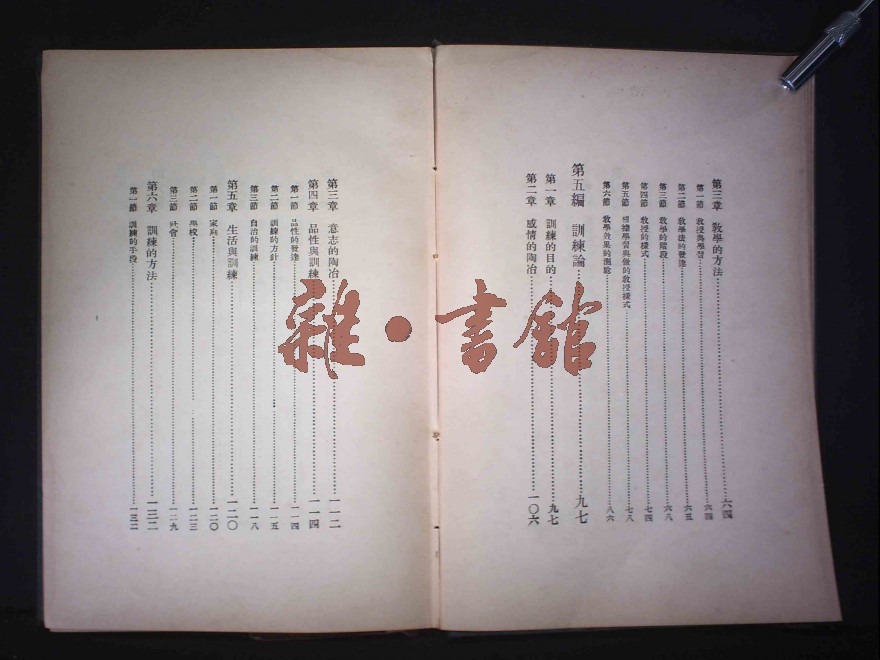 第三章　敎學的方法⋯⋯六四
第一節　敎授與學習⋯⋯六四
第二節　敎學法的發達⋯⋯六五
第三節　敎學的階段⋯⋯六八
第四節　敎授的樣式⋯⋯七四
第五節　學習與做的敎授樣式⋯⋯七八
第六節　敎學效果的測驗⋯⋯八六
第五編　訓練論⋯⋯九七
第一章　訓練的目的⋯⋯九七
第二章　感情的陶冶⋯⋯一〇六
第三章　意志的陶冶⋯⋯一一二
第四章　品性與訓練⋯⋯一一四
第一節　品性的發達⋯⋯一一四
第二節　訓練的方針⋯⋯一一五
第三節　自治的訓練⋯⋯一一八
第五章　生活與訓練⋯⋯一二〇
第一節　家庭⋯⋯一二〇
第二節　學校⋯⋯一二三
第三節　社會⋯⋯一二九
第六章　訓練的方法⋯⋯一三二
第一節　訓練的手段⋯⋯一三二
雜・書館